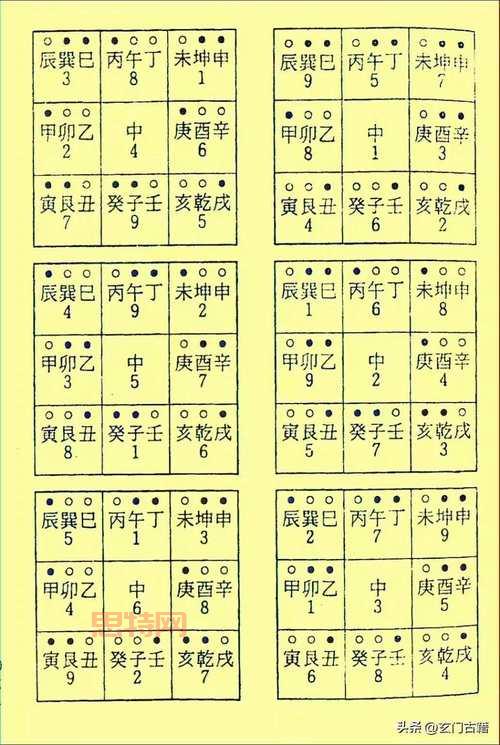 辰巽巳 丙午丁 未坤申
3 8 1
甲卯乙 中 庚酉辛
2 4 6
寅艮丑 癸子壬 亥乾戌
7 9 5
辰巽巳 丙午丁 未坤申
9 5 7
甲卯乙 中 庚酉辛
8 1 3
寅艮丑 癸子壬 亥乾戌
4 6 2
辰巽巳 丙午丁 未坤申
4 9 2
甲卯乙 中 庚酉辛
3 5 7
寅艮丑 癸子壬 亥乾戌
8 1 6
辰巽巳 丙午丁 未坤申
1 6 8
甲卯乙 中 庚酉辛
9 2 4
寅艮丑 癸子壬 亥乾戌
5 7 3
辰巽巳 丙午丁 未坤申
5 1 3
甲卯乙 中 庚酉辛
4 6 8
寅艮丑 癸子壬 亥乾戌
9 2 7
辰巽巳 丙午丁 未坤申
2 7 9
甲卯乙 中 庚酉辛
1 3 5
寅艮丑 癸子壬 亥乾戌
6 8 4
思特网
头条 @玄门古籍